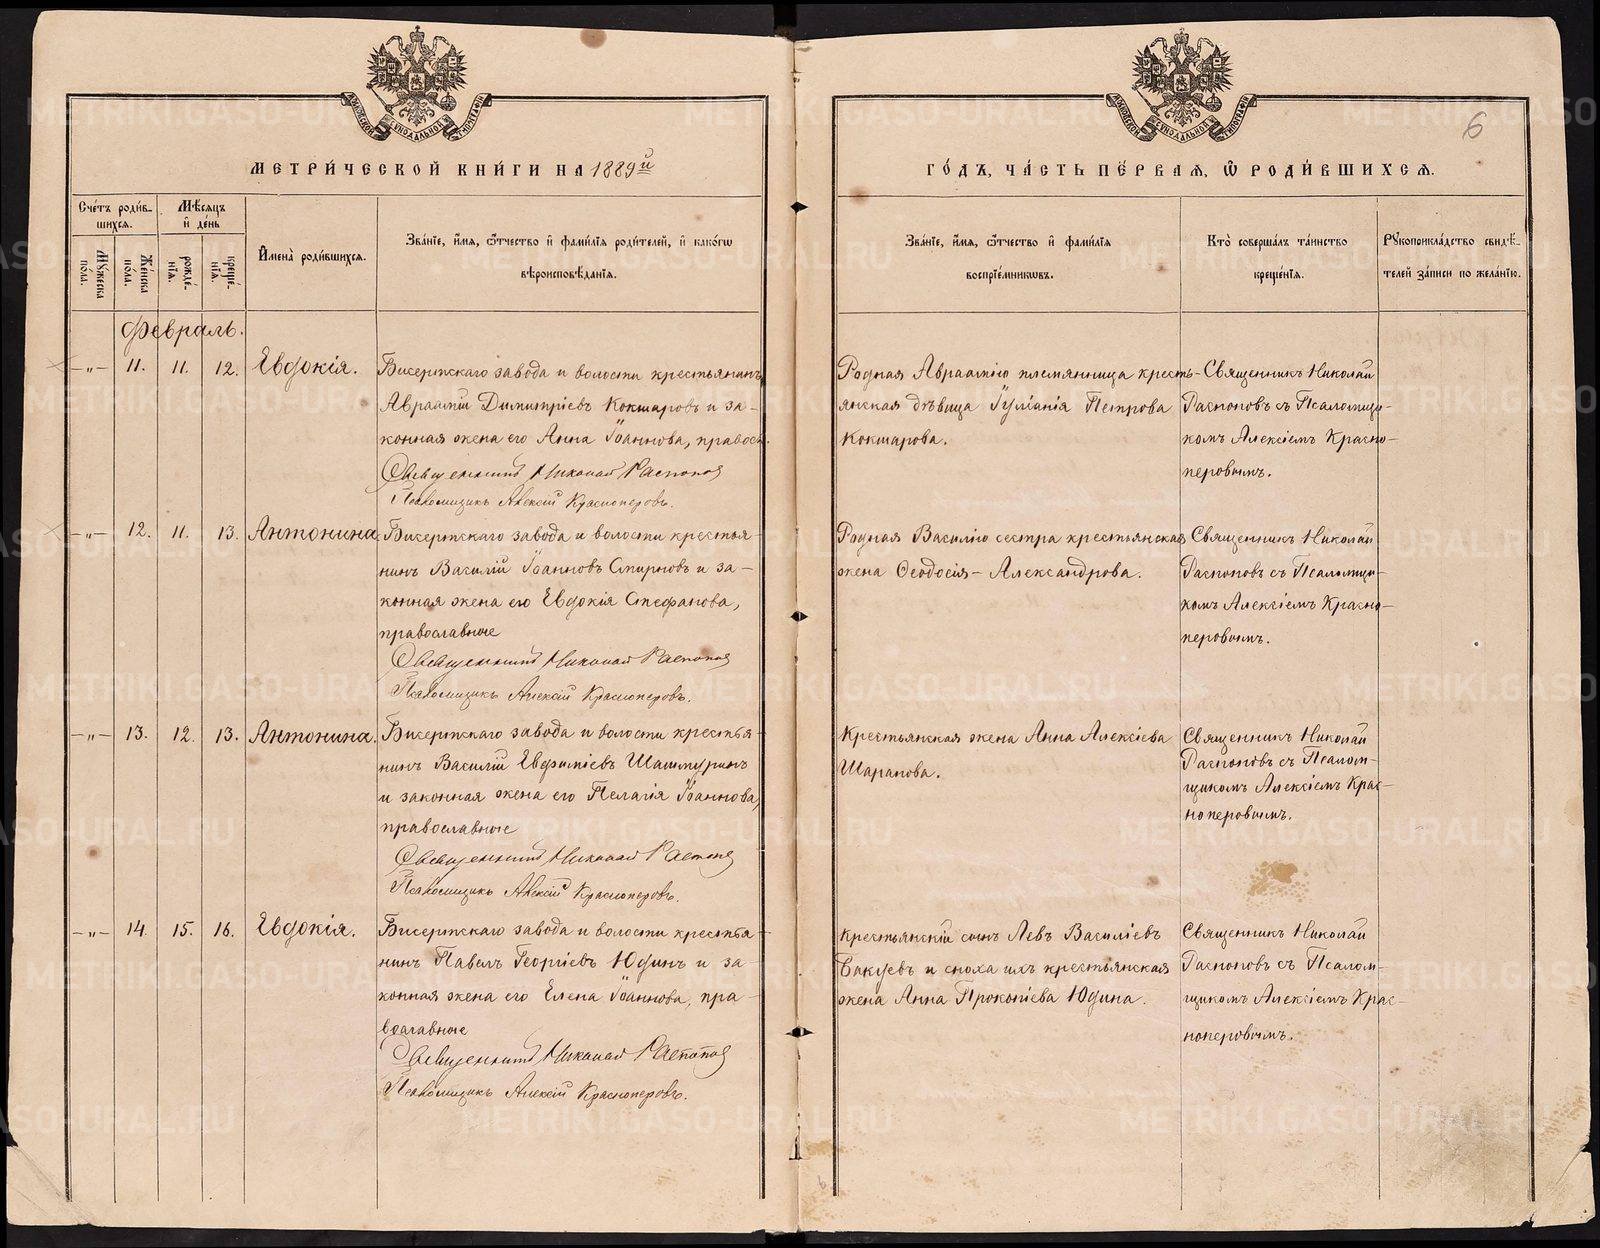 МЕТРИ́ЧЕСКОЙ КНИ́ГИ НА 1889й
ГО́ДЪ, ЧА́СТЬ ПЕ́РВАЯ, Ѡ РОДИ́ВШИХСЯ.
6
Сче́тъ роди́в-
шихся.
Мѣ́сяцъ
и де́нь
Му́жеска по́ла.
Же́нска по́ла.
рожде́-
нїя.
креще́-
нїя.
Имена̀ роди́вшихся.
Зва́нїе, и́мя, ѻ́тчество и фами́лїя роди́телей, и како́гѡ
вѣроисповѣ́данїя.
Зва́нїе, и́мя, ѻ́тчество и фами́лїя
воспрїе́мниковъ.
Кто̀ соверша́лъ та́инство
креще́нїя.
Рукоприкла́дство свидѣ́-
телей за́писи по жела́нїю.
Февраль.
-„- 11. 11. 12. Евдокія.
Бисертскаго завода и волости крестьянинъ
Авраамій Димитріевъ Кокшаровъ и за-
конная жена его Анна Іоаннова, правосл.
Священникъ Николай Распопов
Псаломщикъ Алексій Красноперовъ.
Родная Авраамію племянница кресть-
янская дѣвица Іуліанія Петрова
Кокшарова.
Священникъ Николай
Распоповъ съ Псаломщи-
комъ Алексіемъ Красно-
перовымъ.
-„- 12. 11. 13. Антонина
Бисертскаго завода и волости крестья-
нинъ Василій Іоанновъ Смирновъ и за-
конная жена его Евдокія Стефанова,
православные
Священникъ Николай Распопов
Псаломщикъ Алексій Красноперовъ.
Родная Василію сестра крестьянская
жена Ѳеодосія - Александрова.
Священникъ Николай
Распоповъ съ Псаломщи-
комъ Алексіемъ Красно-
перовымъ.
-„- 13. 12. 13. Антонина.
Бисертскаго завода и волости крестья-
нинъ Василій Евфиміевъ Шашмуринъ
и законная жена его Пелагія Іоаннова,
православные
Священникъ Николай Распопов
Псаломщикъ Алексій Красноперовъ.
Крестьянская жена Анна Алексіева
Шарапова.
Священникъ Николай
Распоповъ съ Псалом-
щикомъ Алексіемъ Крас-
ноперовымъ.
-„- 14. 15. 16. Евдокія.
Бисертскаго завода и волости крестья-
нинъ Павелъ Георгіевъ Юдинъ и за-
конная жена его Елена Іоаннова, пра-
вославные
Священникъ Николай Распопов
Псаломщикъ Алексій Красноперовъ.
Крестьянскій сынъ Левъ Василіевъ
Бакуевъ и сноха ихъ крестьянская
жена Анна Прокопіева Юдина.
Священникъ Николай
Распоповъ съ Псалом-
щикомъ Алексіемъ Крас-
ноперовымъ.
METRIKI.GASO-URAL.RU